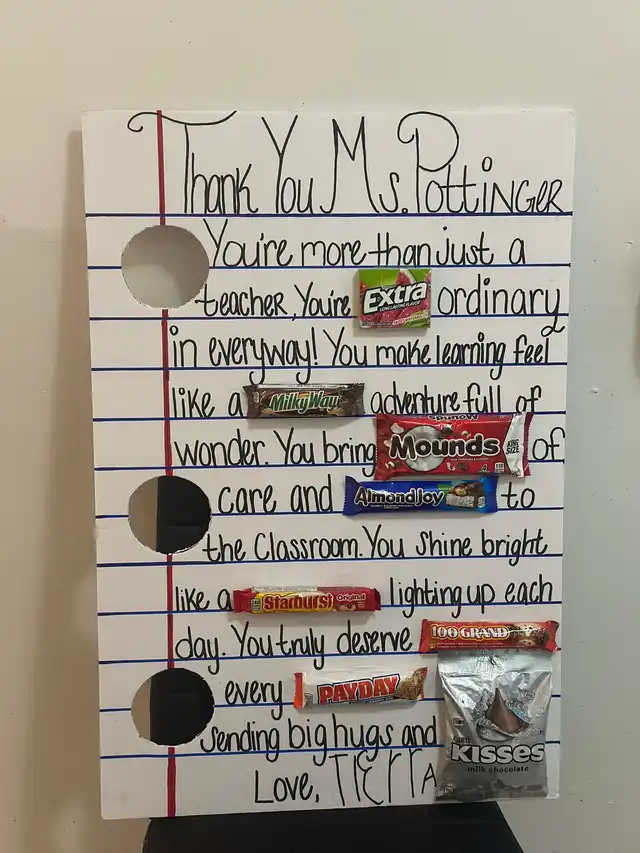 Thank You Ms. Pottinger
You're more than just a
teacher, You're Extra ordinary
in everyway! You make learning feel
like a Milky Way adventure full of
wonder. You bring Mounds KING SIZE of
care and Almond Joy to
the Classroom. You Shine bright
like a Starburst Original lighting up each
day. You truly deserve 100 GRAND
every PAYDAY
sending big hugs and KISSES milk chocolate
Love, TIERRA